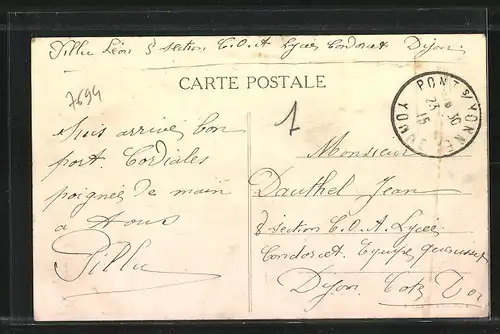 Pillu Léon 8 section C.O.A Lycée Condorcet Dijon
CARTE POSTALE
7694
1
PONT S/ YONNE YONNE
23
15
Suis arrivé bon
port. Cordiales
poignées de main
a tous
Pillu
Monsieur
Dauthel Jean
8 section C.O.A Lycée
Condorcet. Equipe
Dijon. Cote D'or